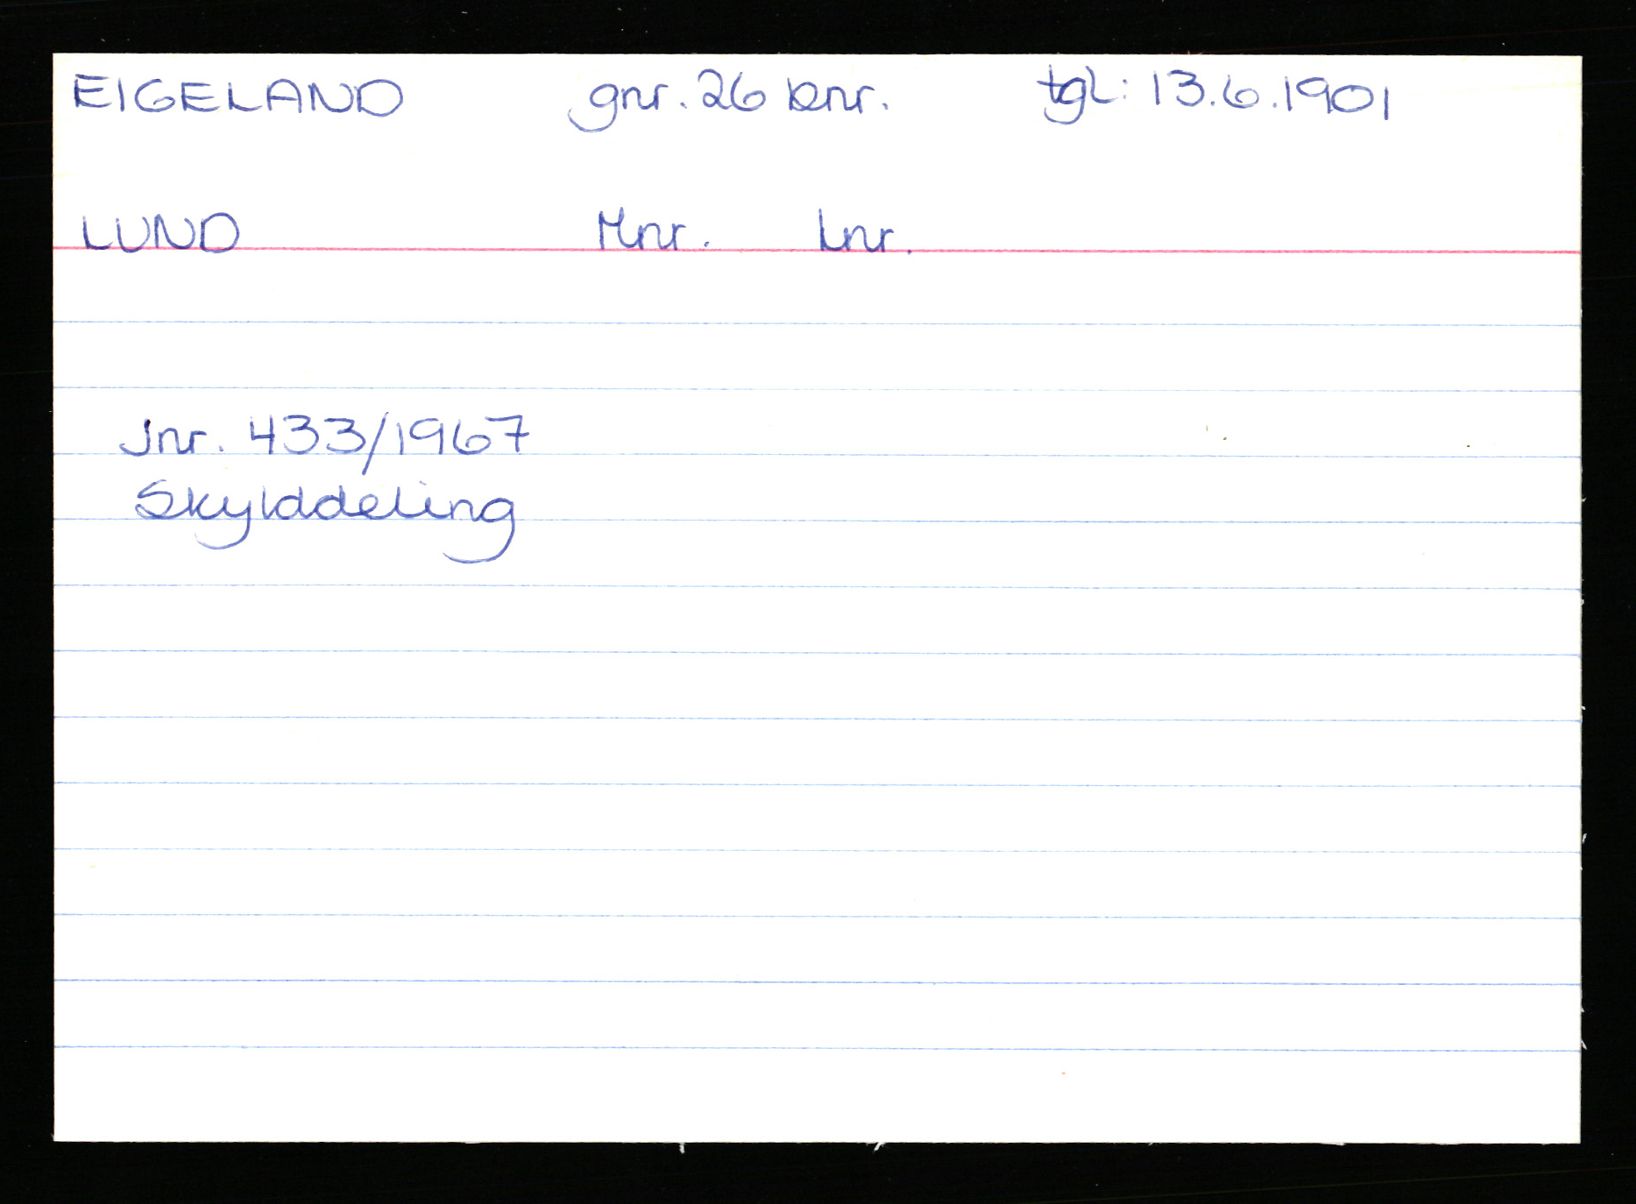 EIGELAND gnr. 26 bnr. tgl: 13.6.1901
LUND Mnr. Lnr.
Jnr. 433/1967
Skylddeling